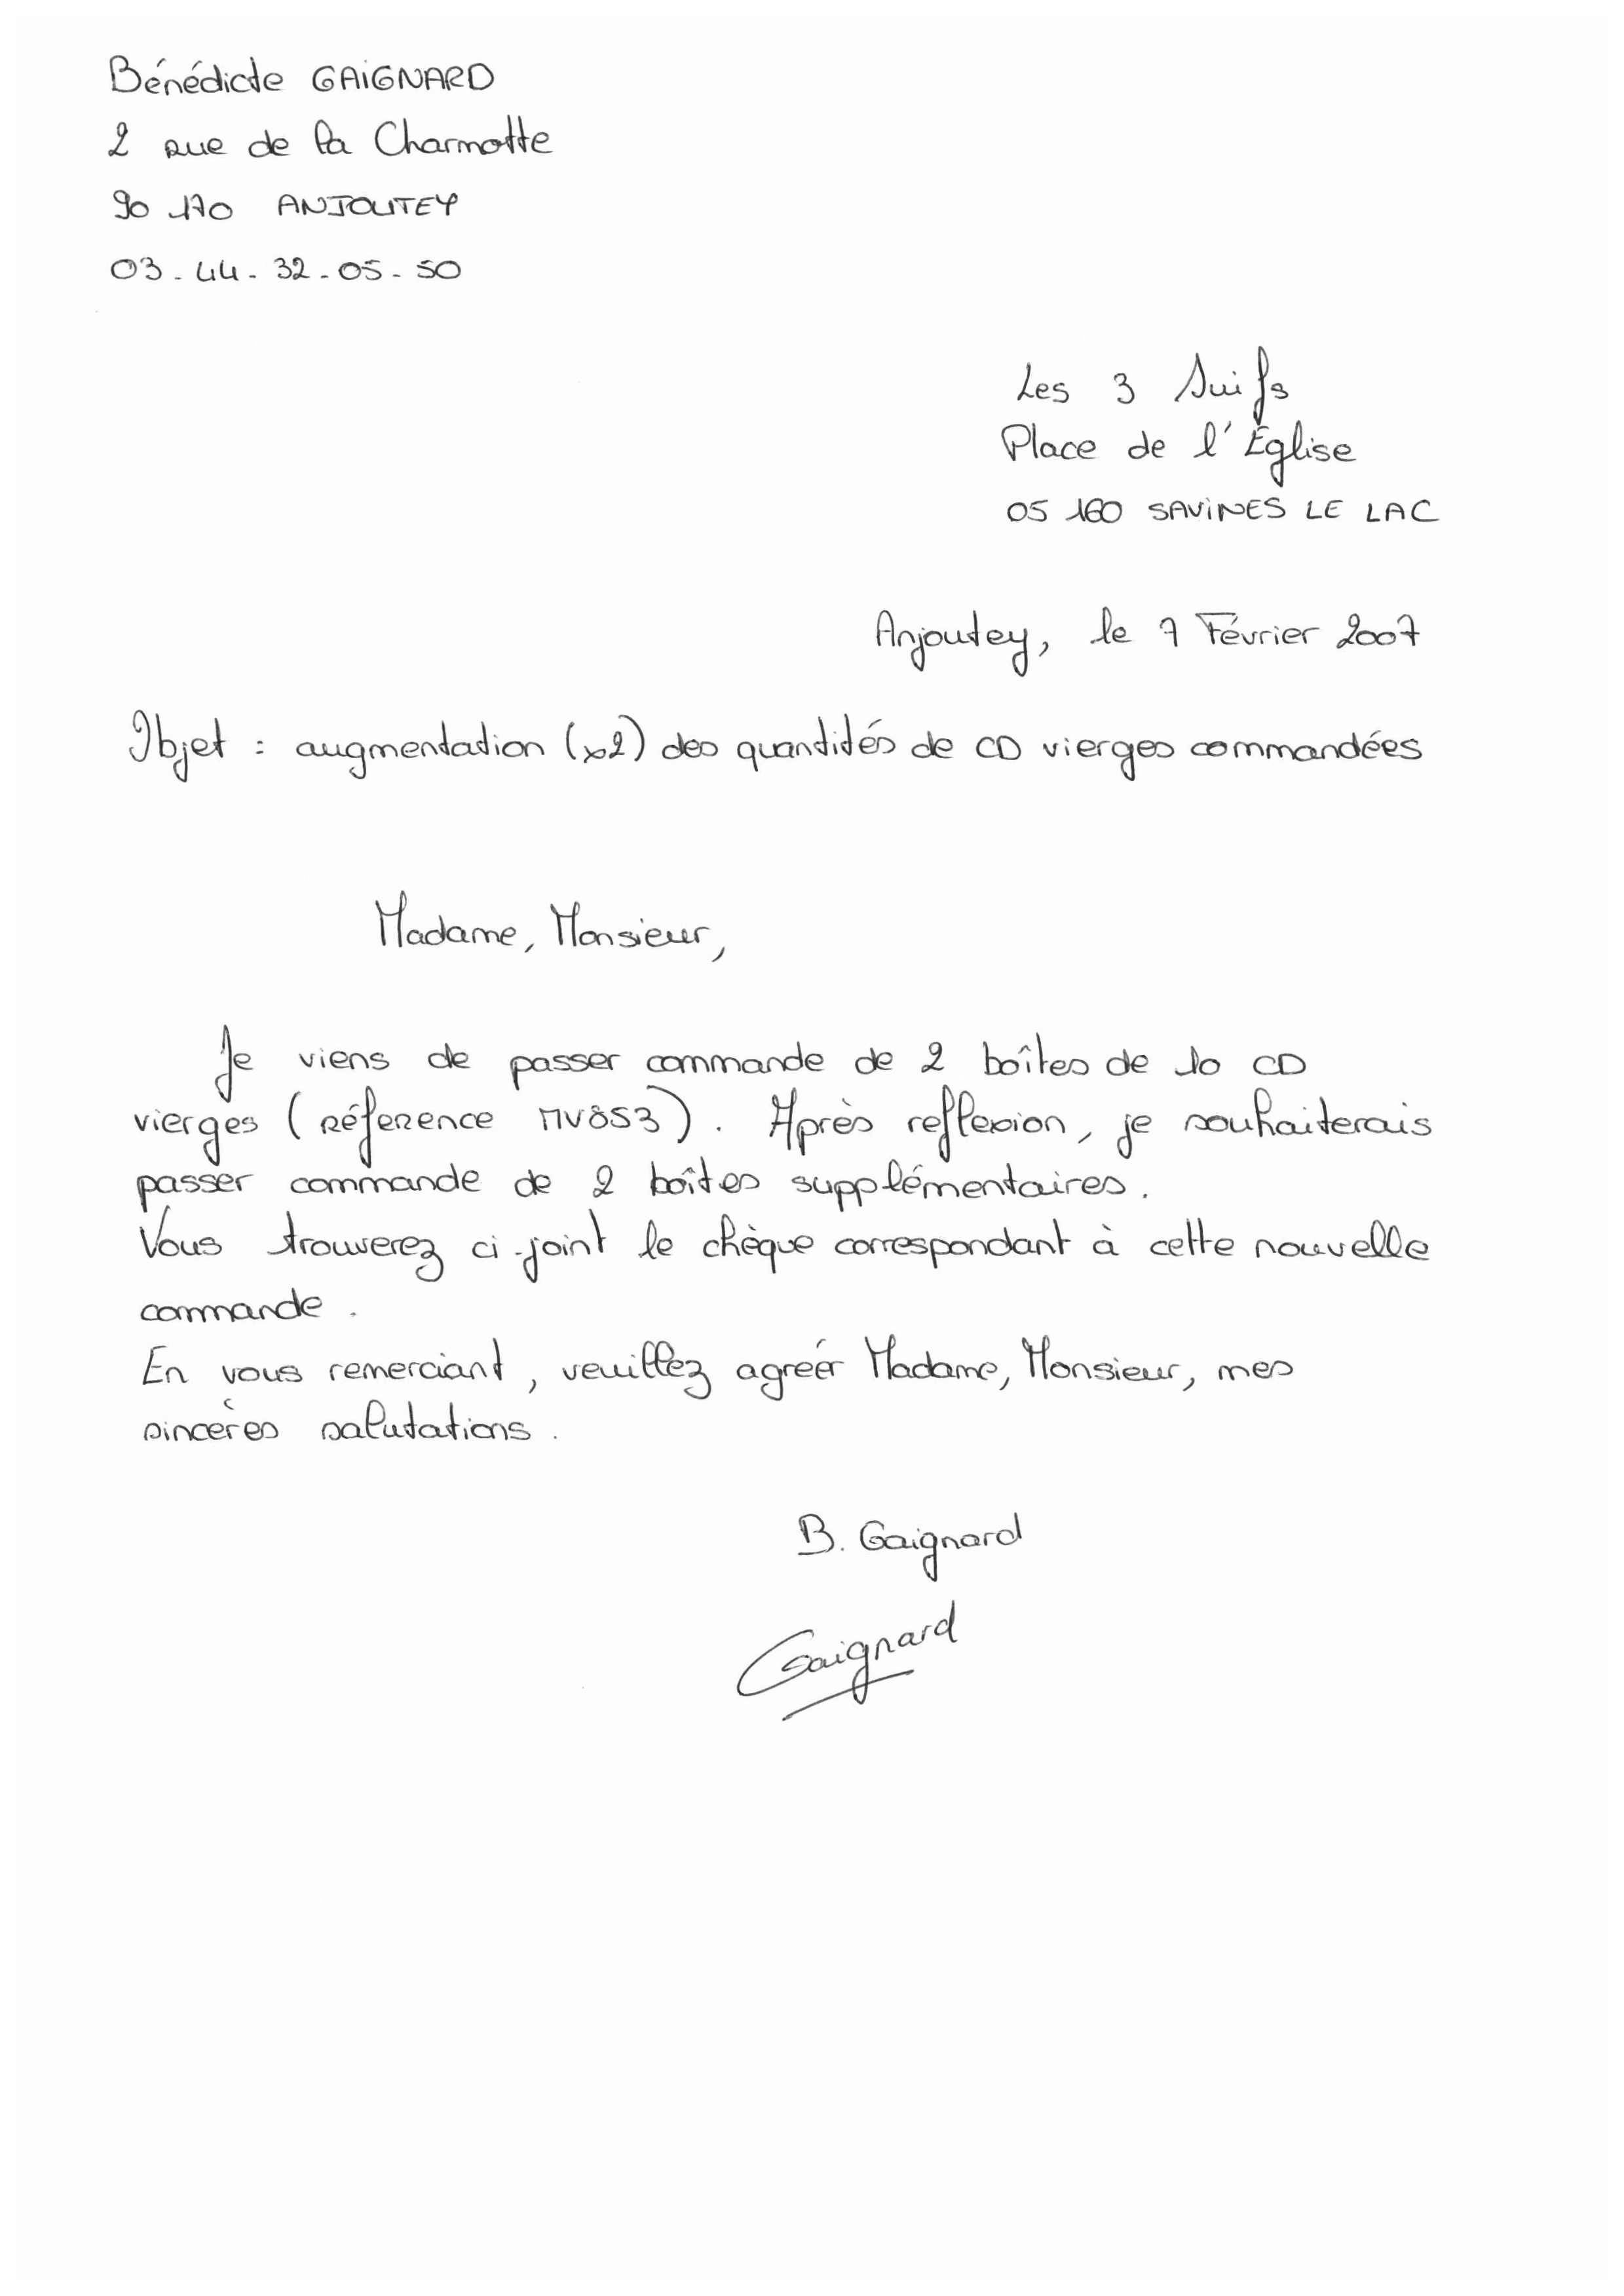 Bénédicte GAIGNARD
2 rue de la Charmotte
90 170 ANJOUTEY
03-44-32-05-50
Les 3 Suifs
Place de l'Église
05 160 SAVINES LE LAC
Anjoutey, le 7 Février 2007
Objet : augmentation (x2) des quantités de CD vierges commandées
Madame, Monsieur,
Je viens de passer commande de 2 boîtes de 10 CD
vierges (réference MV8S3). Après reflexion, je souhaiterais
passer commande de 2 boîtes supplémentaires.
Vous trouverez ci-joint le chèque correspondant à cette nouvelle
commande.
En vous remerciant, veuillez agreér Madame, Monsieur, mes
sincères salutations.
B. Gaignard
Gaignard